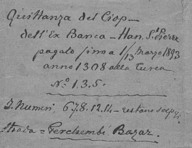 Quittanza del Ciop
dell'Ex Banca - Han. S. Piere
pagato fino a 1/13 marzo 1893
anno 1308 alla turca
No. 1.3.5.
I. Numeri 6.7.8.12.14 - restano
strada - Perchembi Bazar.